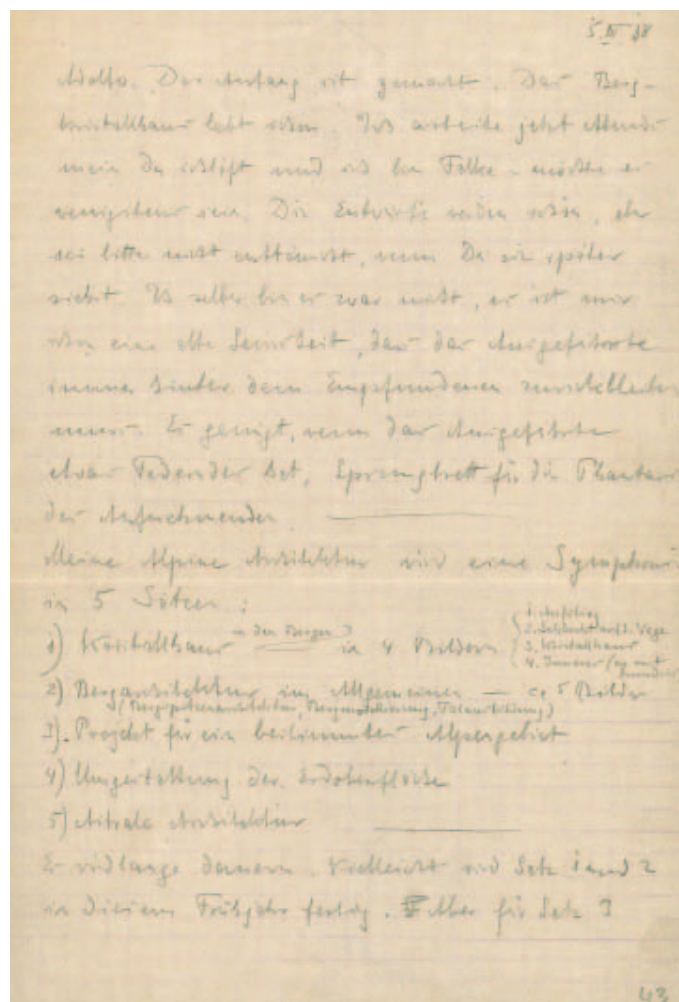 5.IV 18
Der Anfang ist gemacht. Das Berg-
kristallhaus lebt schon. Ich arbeite jetzt Abends
mein Du schläft und ich bin Falke – möchte es
wenigstens sein. Die Entwürfe werden schön, aber
sei bitte nicht enttäuscht, wenn Du sie später
siehst. Ich selber bin es zwar nicht, es ist mir
schon eine alte Gewissheit, dass das Ausgeführte
immer hinter dem Empfundenen zurückbleiben
muss. Es genügt, wenn das Ausgeführte
etwas Federndes hat, Sprungbrett für die Phantasie
des Aufnehmenden
Meine Alpine Architektur wird eine Symphonie
in 5 Sätzen :
1) Kristallhaus in den Bergen in 4 Bildern
1. Aufstieg
2. Schlucht auf d. Wege
3. Kristallhaus
4. Inneres
2) Bergarchitektur im Allgemeinen – ca 5 Bilder
(Bergspitzenarchitektur, Bergmodellierung, Talausbildung)
3). Projekt für ein bestimmtes Alpengebiet
4) Umgestaltung der Erdoberfläche
5) Astrale Architektur
Es wird lange dauern. Vielleicht wird Satz 1 und 2
in diesem Frühjahr fertig. Aber für Satz 3
43